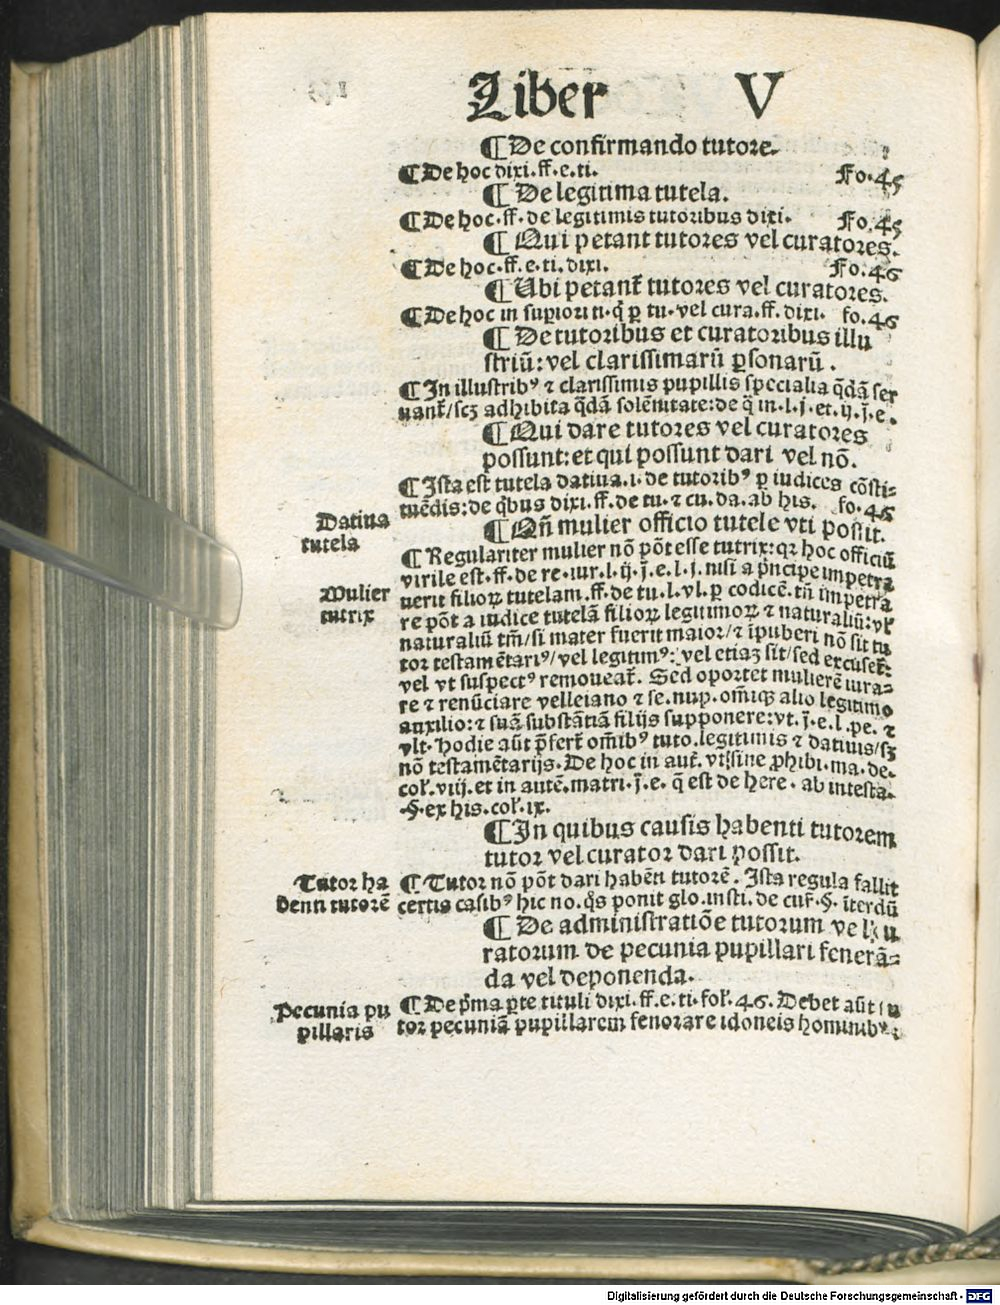 Liber V
¶ De confirmando tutore.
¶ De hoc dixi.ff.e.ti. Fo.45
¶ De legitima tutela.
¶ De hoc.ff.de legitimis tutoribus dixi. Fo.45
¶ Qui petant tutores vel curatores.
¶ De hoc.ff.e.ti.dixi. Fo.46
¶ Ubi petanť tutores vel curatores.
¶ De hoc in superiori ꝑ tu.vel cura.ff.dixi. fo.46
¶ De tutoribus et curatoribus illu
striū: vel clarissimarū ꝑsonarū.
¶ In illustribꝰ ⁊ clarissimis pupillis specialia q̄dā ser
uanť/scꝫ adhibita q̄dā solēnitate:de q̄ in.l.j.et.ij.j̄.e.
¶ Qui dare tutores vel curatores
possunt: et qui possunt dari vel nō.
¶ Ista est tutela datiua.i.de tutoribꝰ ꝑ iudices cōsti-
tuēdis:de q̄bus dixi.ff.de tu.⁊ cu.da.ab his. fo.45
Datiua
tutela
¶ Qn̄ mulier officio tutele vti possit.
¶ Regulariter mulier nō pōt esse tutrix:qꝛ hoc officiū
Mulier
tutrix
virile est.ff.de re.iur.l.ij.j̄.e.l.j.nisi a p̄ncipe impetra
uerit filioꝝ tutelam.ff.de tu.l.vl.ꝑ codicē.tn̄ impetra
re pōt a iudice tutelā filioꝝ legitimoꝝ ⁊ naturaliū:vľ
naturaliū tm̄/si mater fuerit maior/⁊ īpuberi nō sit tu
tor testamētariꝰ/vel legitimꝰ:vel etiaꝫ sit/sed excuseť:
vel vt suspectꝰ remoueať. Sed oportet mulierē iura-
re ⁊ renūciare velleiano ⁊ se.nup.om̄iqꝫ alio legitimo
auxilio:⁊ suā substātiā filijs supponere:vt.j̄.e.l.pe.⁊
vlt.Hodie aūt p̄ferť om̄ibꝰ tuto.legitimis ⁊ datiuis/sꝫ
nō testamētarijs.De hoc in aut̄.vt sine ꝓhibi.ma.de.
col.viij.et in autē.matri.j̄.e. q̄ est de here.ab intesta.
.§.ex his.col.ix.
¶ In quibus causis habenti tutorem
tutor vel curator dari possit.
Tutor ha
denti tutorē
¶ Tutor nō pōt dari habēti tutorē. Ista regula fallit
certis casibꝰ hic no.q̄s ponit glo.insti.de cur.§.īterdū
¶ De administratiōe tutorum vel cu
ratorum de pecunia pupillari fenerā-
da vel deponenda.
Pecunia pu
pillaris
¶ De p̄ma ꝑte tituli dixi.ff.e.ti.fol.46. Debet aūt tu
tor pecuniā pupillarem fenorare idoneis hominibꝰ
Digitalisierung gefördert durch die Deutsche Forschungsgemeinschaft - DFG